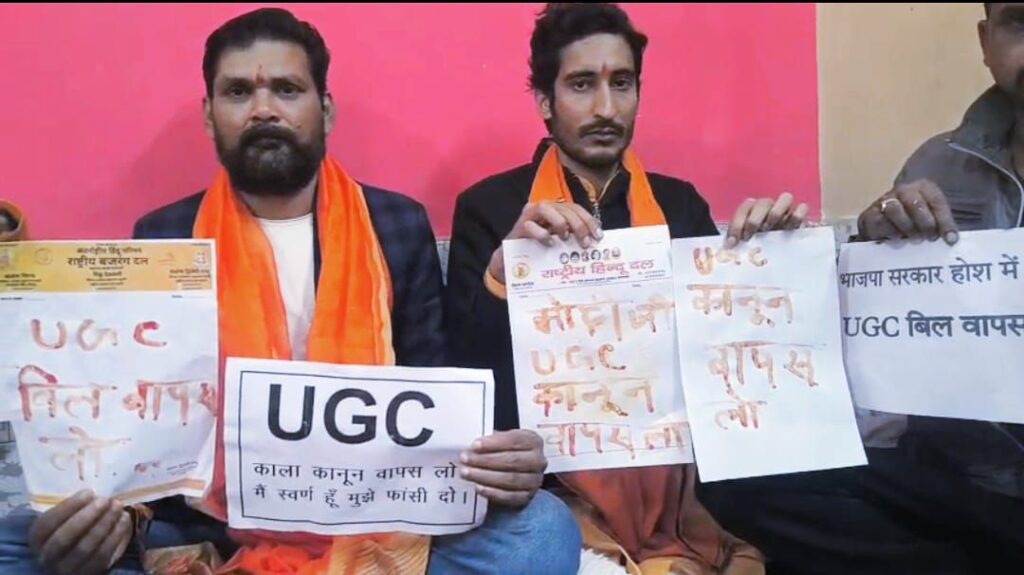 अंतर्राष्ट्रीय हिन्दू परिषद
राष्ट्रीय बजरंग दल
UGC
बिल वापस
लो
UGC
काला कानून वापस लो
मैं स्वर्ण हूँ मुझे फांसी दो।
राष्ट्रीय हिन्दू दल
मोदी जी
UGC
कानून
वापस लो
UGC
कानून
वापस
लो
भाजपा सरकार होश में
UGC बिल वापस